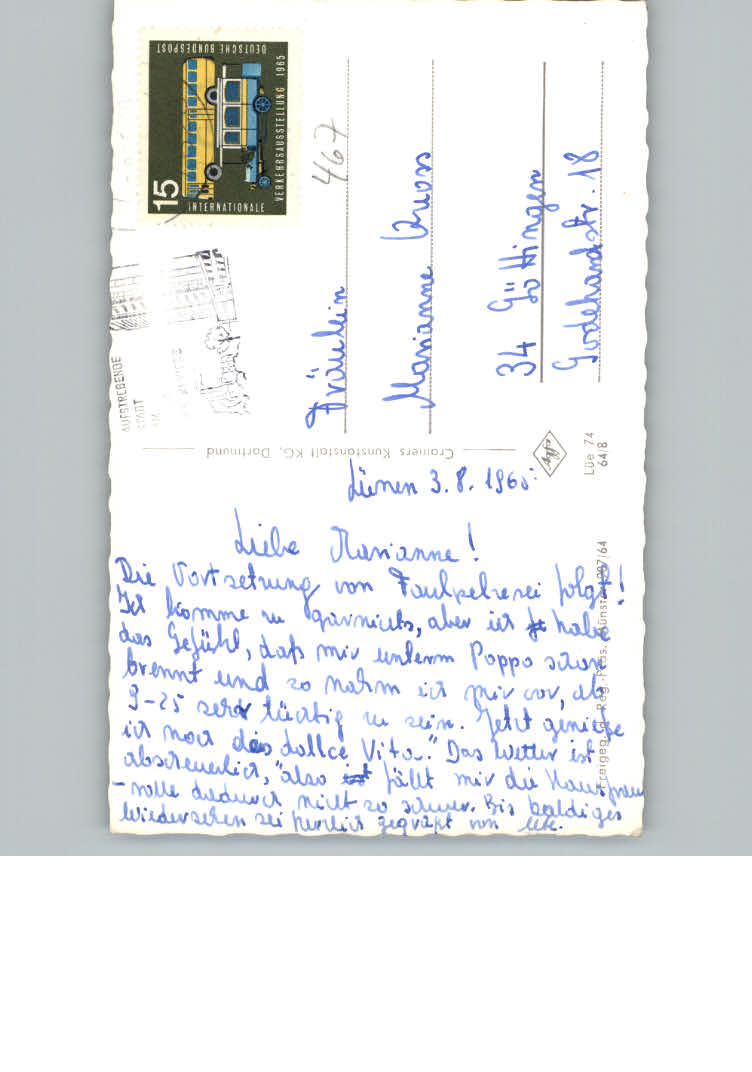 DEUTSCHE BUNDESPOST
15
INTERNATIONALE
VERKEHRSAUSSTELLUNG 1965
467
AUFSTREBENDE
STADT
Fräulein
Marianne
34 Göttingen
Godehardstr. 18
Cramers Kunstanstalt KG, Dortmund
Lüe 74
64/8
Freigeg. d. Reg.-Präs. Münster /64
Lünen 3.8.1965
Liebe Marianne!
Die Vortsetzung von Faulpelzerei folgt!
Ich komme zu garnichts, aber ich habe
das Gefühl, daß mir unterm Poppo schon
brennt und so nahm ich mir vor, ab
9-25 sehr tüchtig zu sein. Jetzt genieße
ich noch das dollce Vita." Das Wetter ist
abscheuerlich, also fällt mir die Hausfrauen
-rolle dadurch nicht so schwer. Bis baldiges
Wiedersehen sei herzlich gegrüßt von